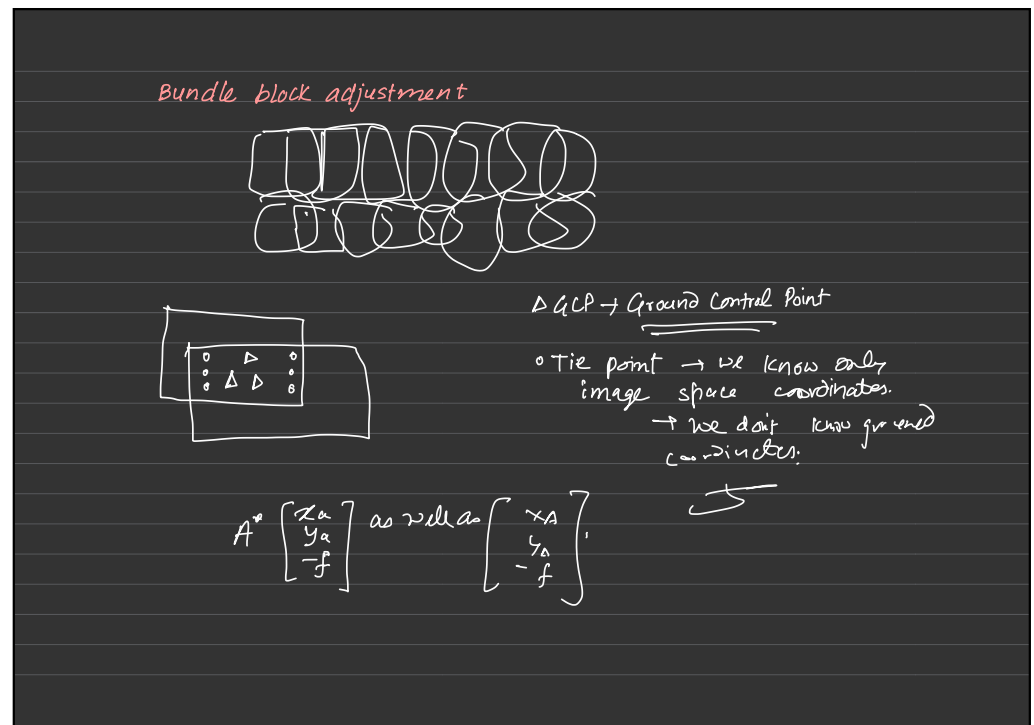 Bundle block adjustment
Δ GCP → Ground Control Point
o Tie point → we know only
image space coordinates.
→ we don't know ground
coordinates.
A" [xa ya -f] as well as [xA yA -f]